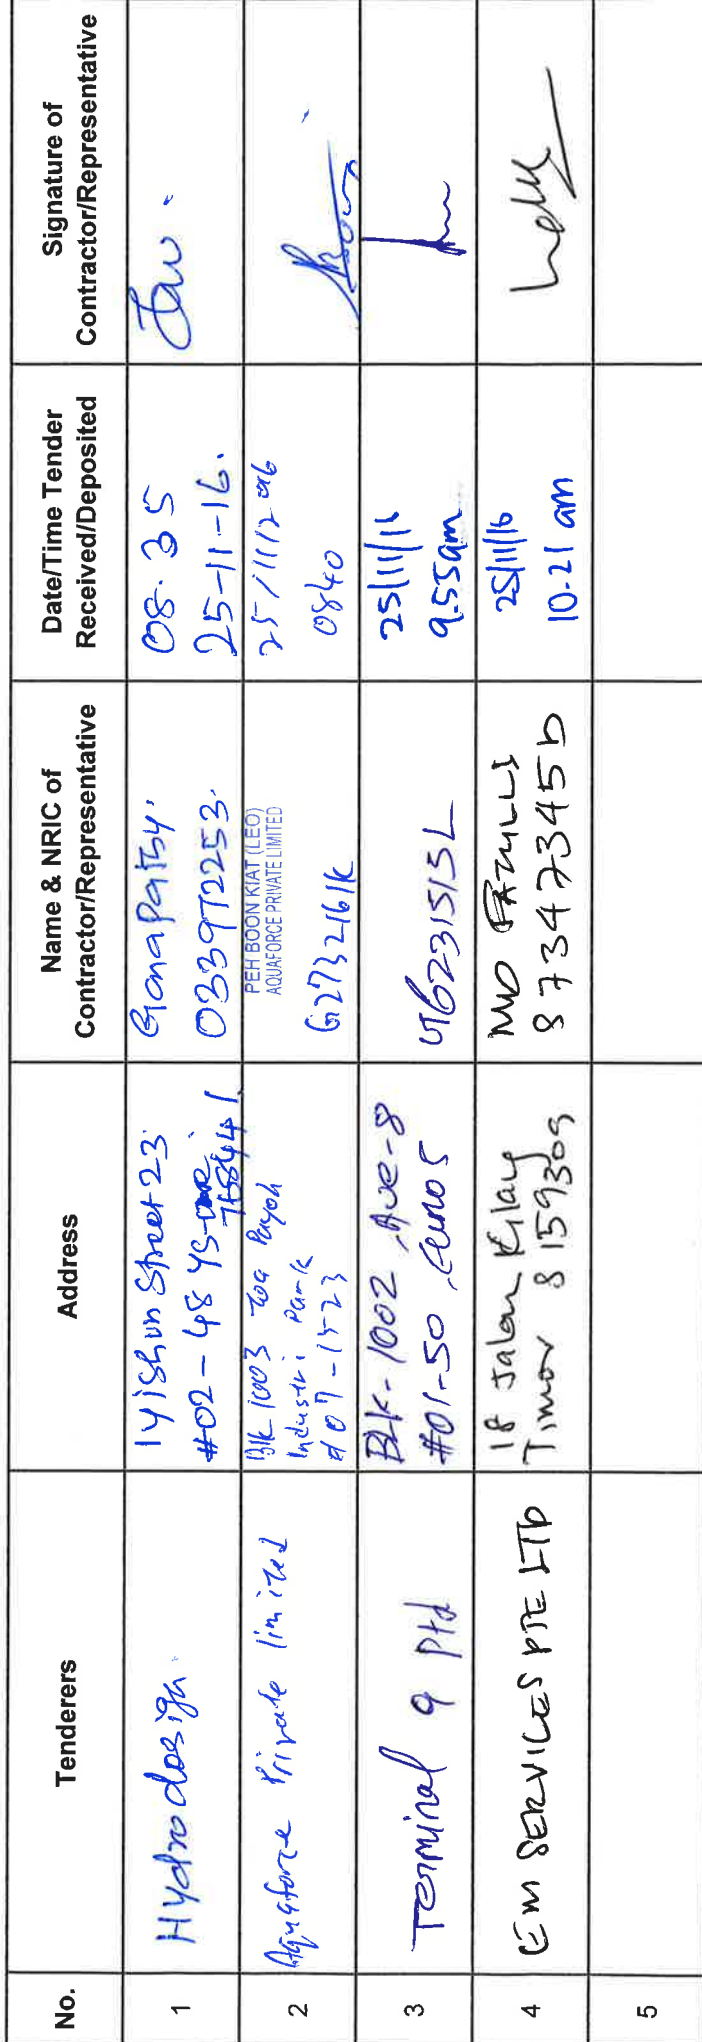 No.
Tenderers
Address
Name & NRIC of
Contractor/Representative
Date/Time Tender
Received/Deposited
Signature of
Contractor/Representative
1
Hydrodesign.
1 Yishun Street 23
#02-48 YS-one
768441.
Ganapathy.
033972253.
08.35
25-11-16.
2
Aquaforce Private limited
Blk 1003 Toa Payoh
Industri Park
#07-1523
PEH BOON KIAT (LEO)
AQUAFORCE PRIVATE LIMITED
G2732161K
25/11/2016
0840
3
Terminal 9 Ptd
BLK-1002, Ave-8
#01-50, Eunos
G6231515L
25/11/16
9.55am
4
EM SERVICES PTE LTD
18 Jalan Kilay
Timor S 159309
MD FAZULLI
S73473345D
25/11/16
10.21 am
5